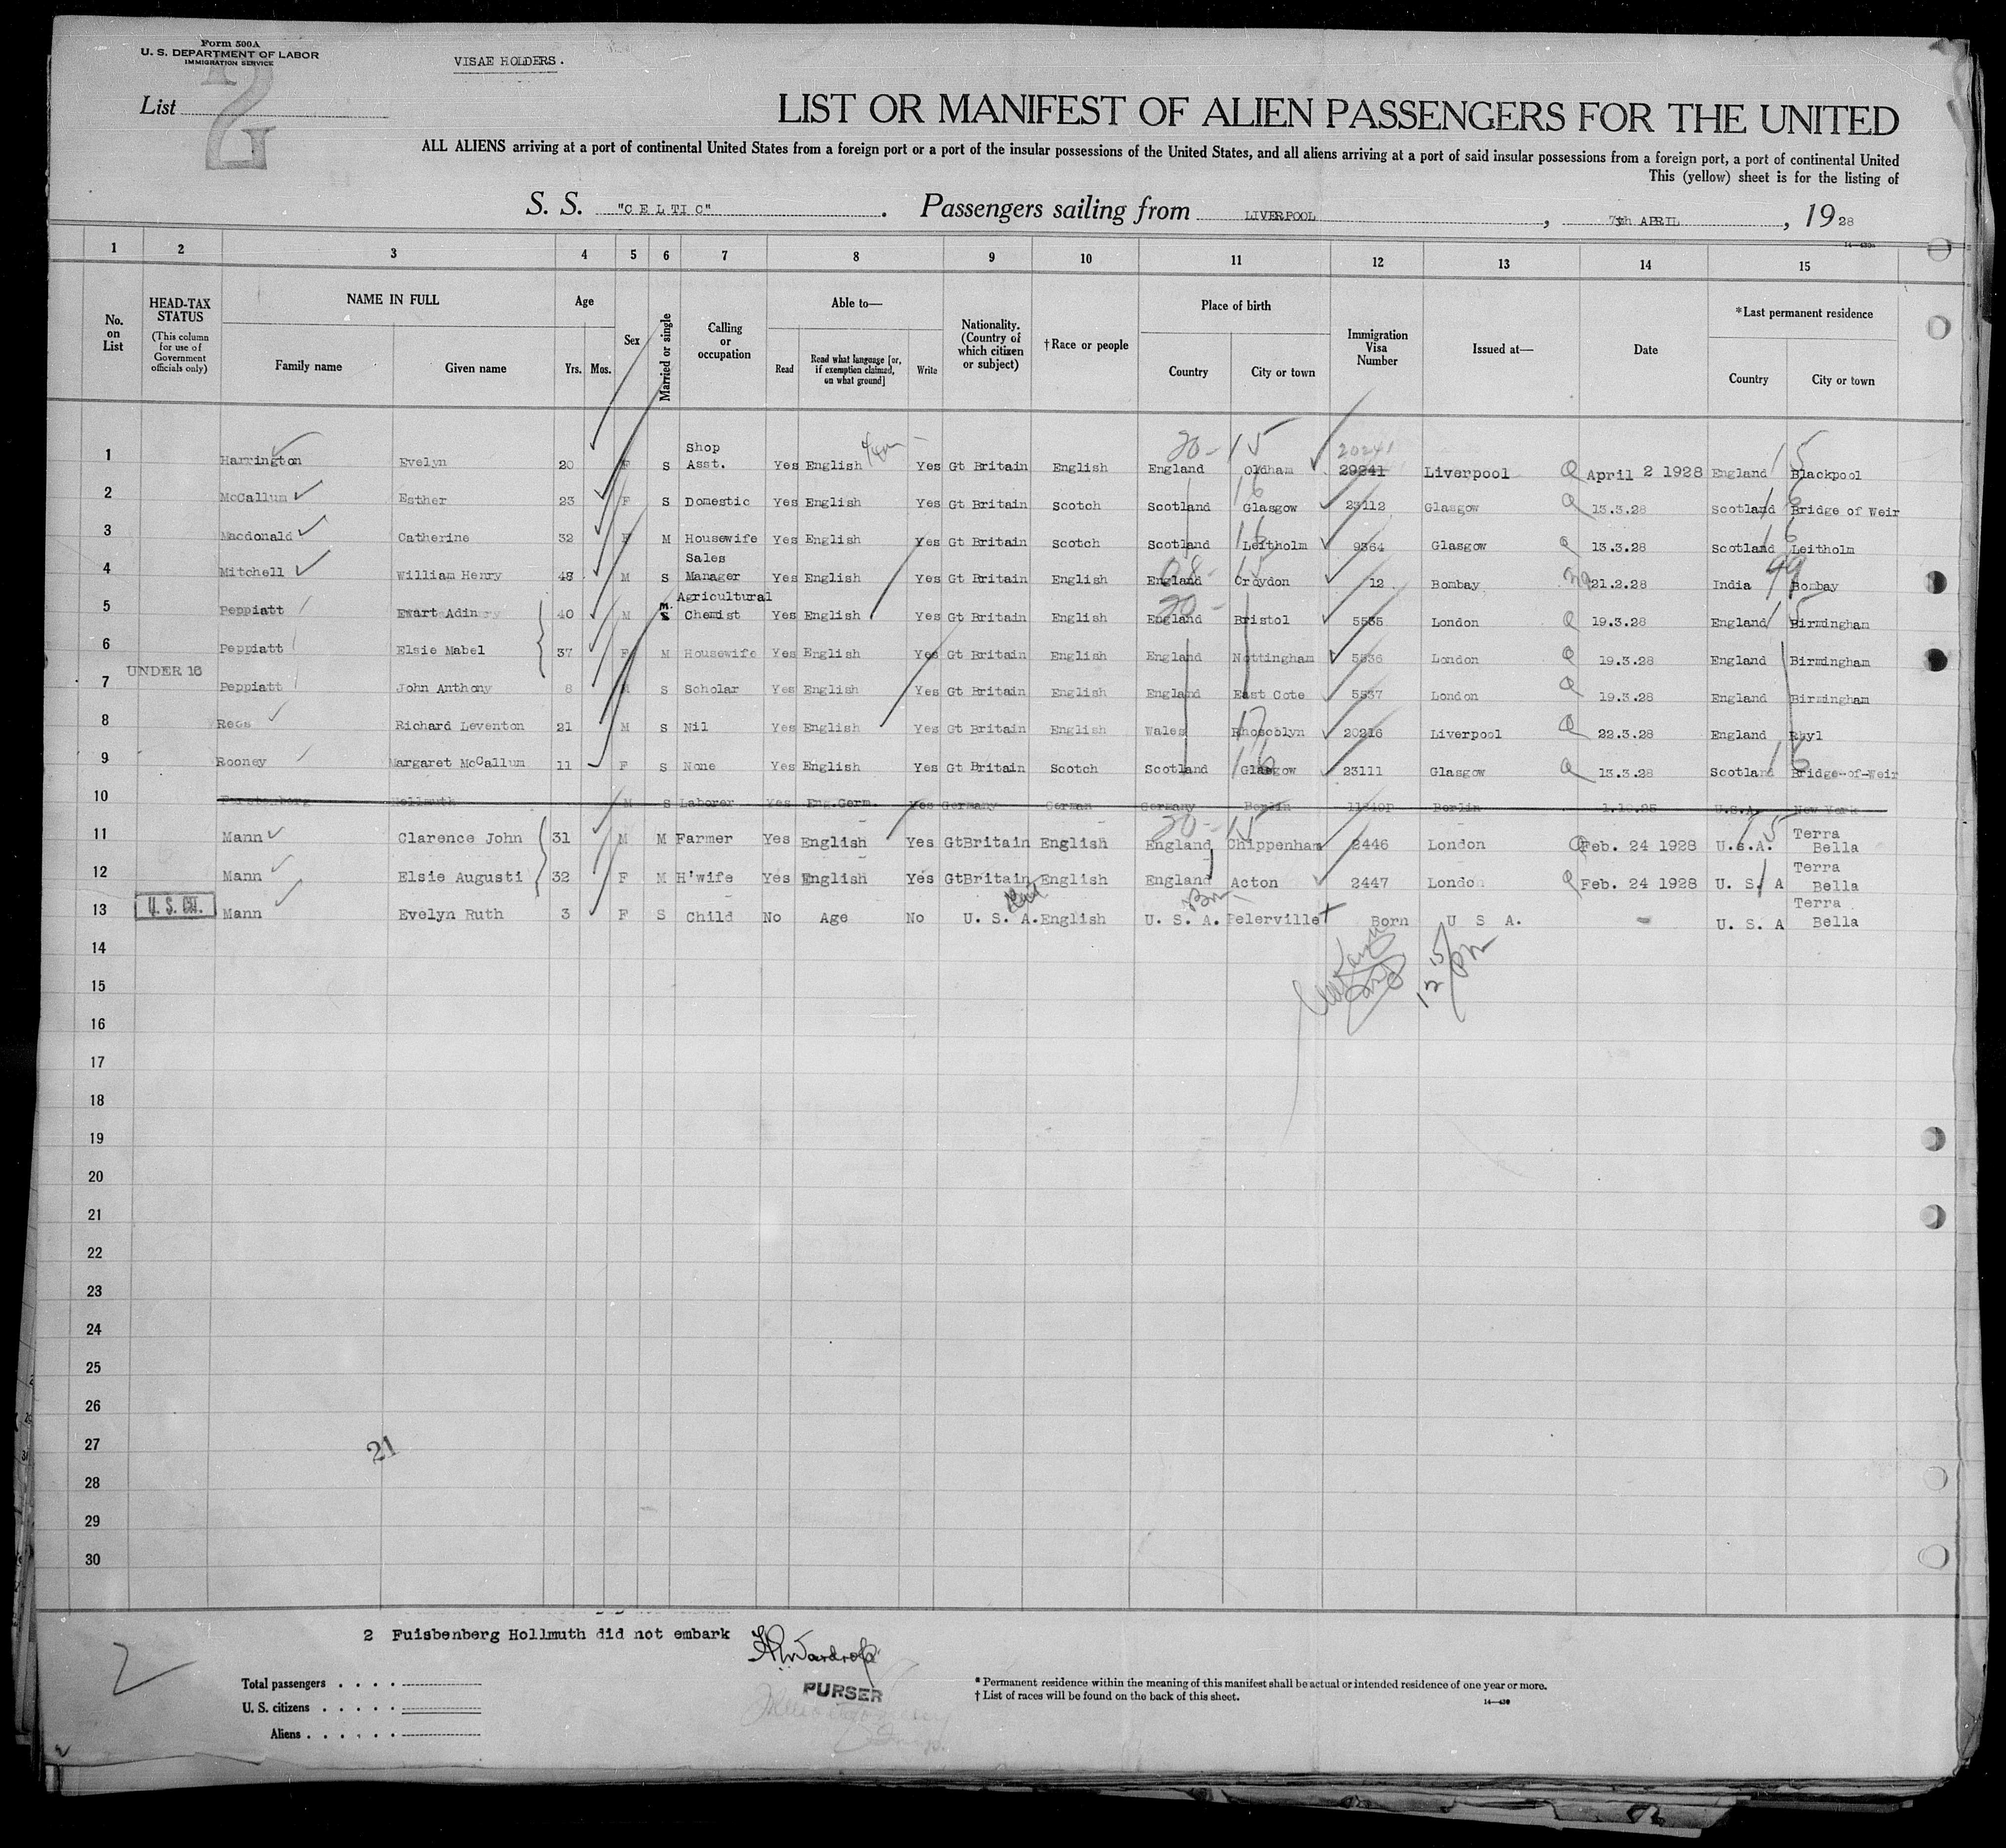 Form 500A
U. S. DEPARTMENT OF LABOR
IMMIGRATION SERVICE
VISAE HOLDERS.
List
LIST OR MANIFEST OF ALIEN PASSENGERS FOR THE UNITED
ALL ALIENS arriving at a port of continental United States from a foreign port or a port of the insular possessions of the United States, and all aliens arriving at a port of said insular possessions from a foreign port, a port of continental United
This (yellow) sheet is for the listing of
S. S. "CELTIC". Passengers sailing from LIVERPOOL, 7th APRIL, 1928
1 2 3 4 5 6 7 8 9 10 11 12 13 14 15
No. on List
HEAD-TAX STATUS
(This column for use of Government officials only)
NAME IN FULL
Family name Given name
Age
Yrs. Mos.
Sex
Married or single
Calling or occupation
Able to—
Read Read what language [or, if exemption claimed, on what ground] Write
Nationality. (Country of which citizen or subject)
† Race or people
Place of birth
Country City or town
Immigration Visa Number
Issued at—
Date
*Last permanent residence
Country City or town
20- 15 20241 15
1 Harrington Evelyn 20 F S Shop Asst. Yes English Yes Gt Britain English England Oldham 20241 Liverpool April 2 1928 England Blackpool
2 McCallum Esther 23 F S Domestic Yes English Yes Gt Britain Scotch Scotland Glasgow 23112 Glasgow 13.3.28 Scotland Bridge of Weir
3 Macdonald Catherine 32 F M Housewife Yes English Yes Gt Britain Scotch Scotland Leitholm 9364 Glasgow 13.3.28 Scotland Leitholm
4 Mitchell William Henry 48 M S Sales Manager Yes English Yes Gt Britain English England Croydon 12 Bombay 21.2.28 India Bombay
5 Peppiatt Ewart Adin 40 M m. S Agricultural Chemist Yes English Yes Gt Britain English England Bristol 5535 London 19.3.28 England Birmingham
6 Peppiatt Elsie Mabel 37 F M Housewife Yes English Yes Gt Britain English England Nottingham 5536 London 19.3.28 England Birmingham
UNDER 16
7 Peppiatt John Anthony 8 M S Scholar Yes English Yes Gt Britain English England East Cote 5537 London 19.3.28 England Birmingham
8 Rees Richard Leventon 21 M S Nil Yes English Yes Gt Britain English Wales Rhoscblyn 20216 Liverpool 22.3.28 England Rhyl
9 Rooney Margaret McCallum 11 F S None Yes English Yes Gt Britain Scotch Scotland Glasgow 23111 Glasgow 13.3.28 Scotland Bridge-of-Weir
10 Hellmuth M S Laborer Yes Eng.Germ. Yes Germany German Germany Berlin Berlin U.S.A. New York
11 Mann Clarence John 31 M M Farmer Yes English Yes GtBritain English England Chippenham 2446 London Feb. 24 1928 U.S.A. Terra Bella
12 Mann Elsie Augusti 32 F M H'wife Yes English Yes GtBritain English England Acton 2447 London Feb. 24 1928 U. S. A Terra Bella
13 U. S. Cit. Mann Evelyn Ruth 3 F S Child No Age No U. S. A. English U. S. A. Pelerville Born U S A. - U. S. A Terra Bella
14
15
16
17
18
19
20
21
22
23
24
25
26
27
28
29
30
21
12 15 pm
2 Fuisbenberg Hollmuth did not embark
Wardrop
PURSER
2
Total passengers
U. S. citizens
Aliens
* Permanent residence within the meaning of this manifest shall be actual or intended residence of one year or more.
† List of races will be found on the back of this sheet.
14—430